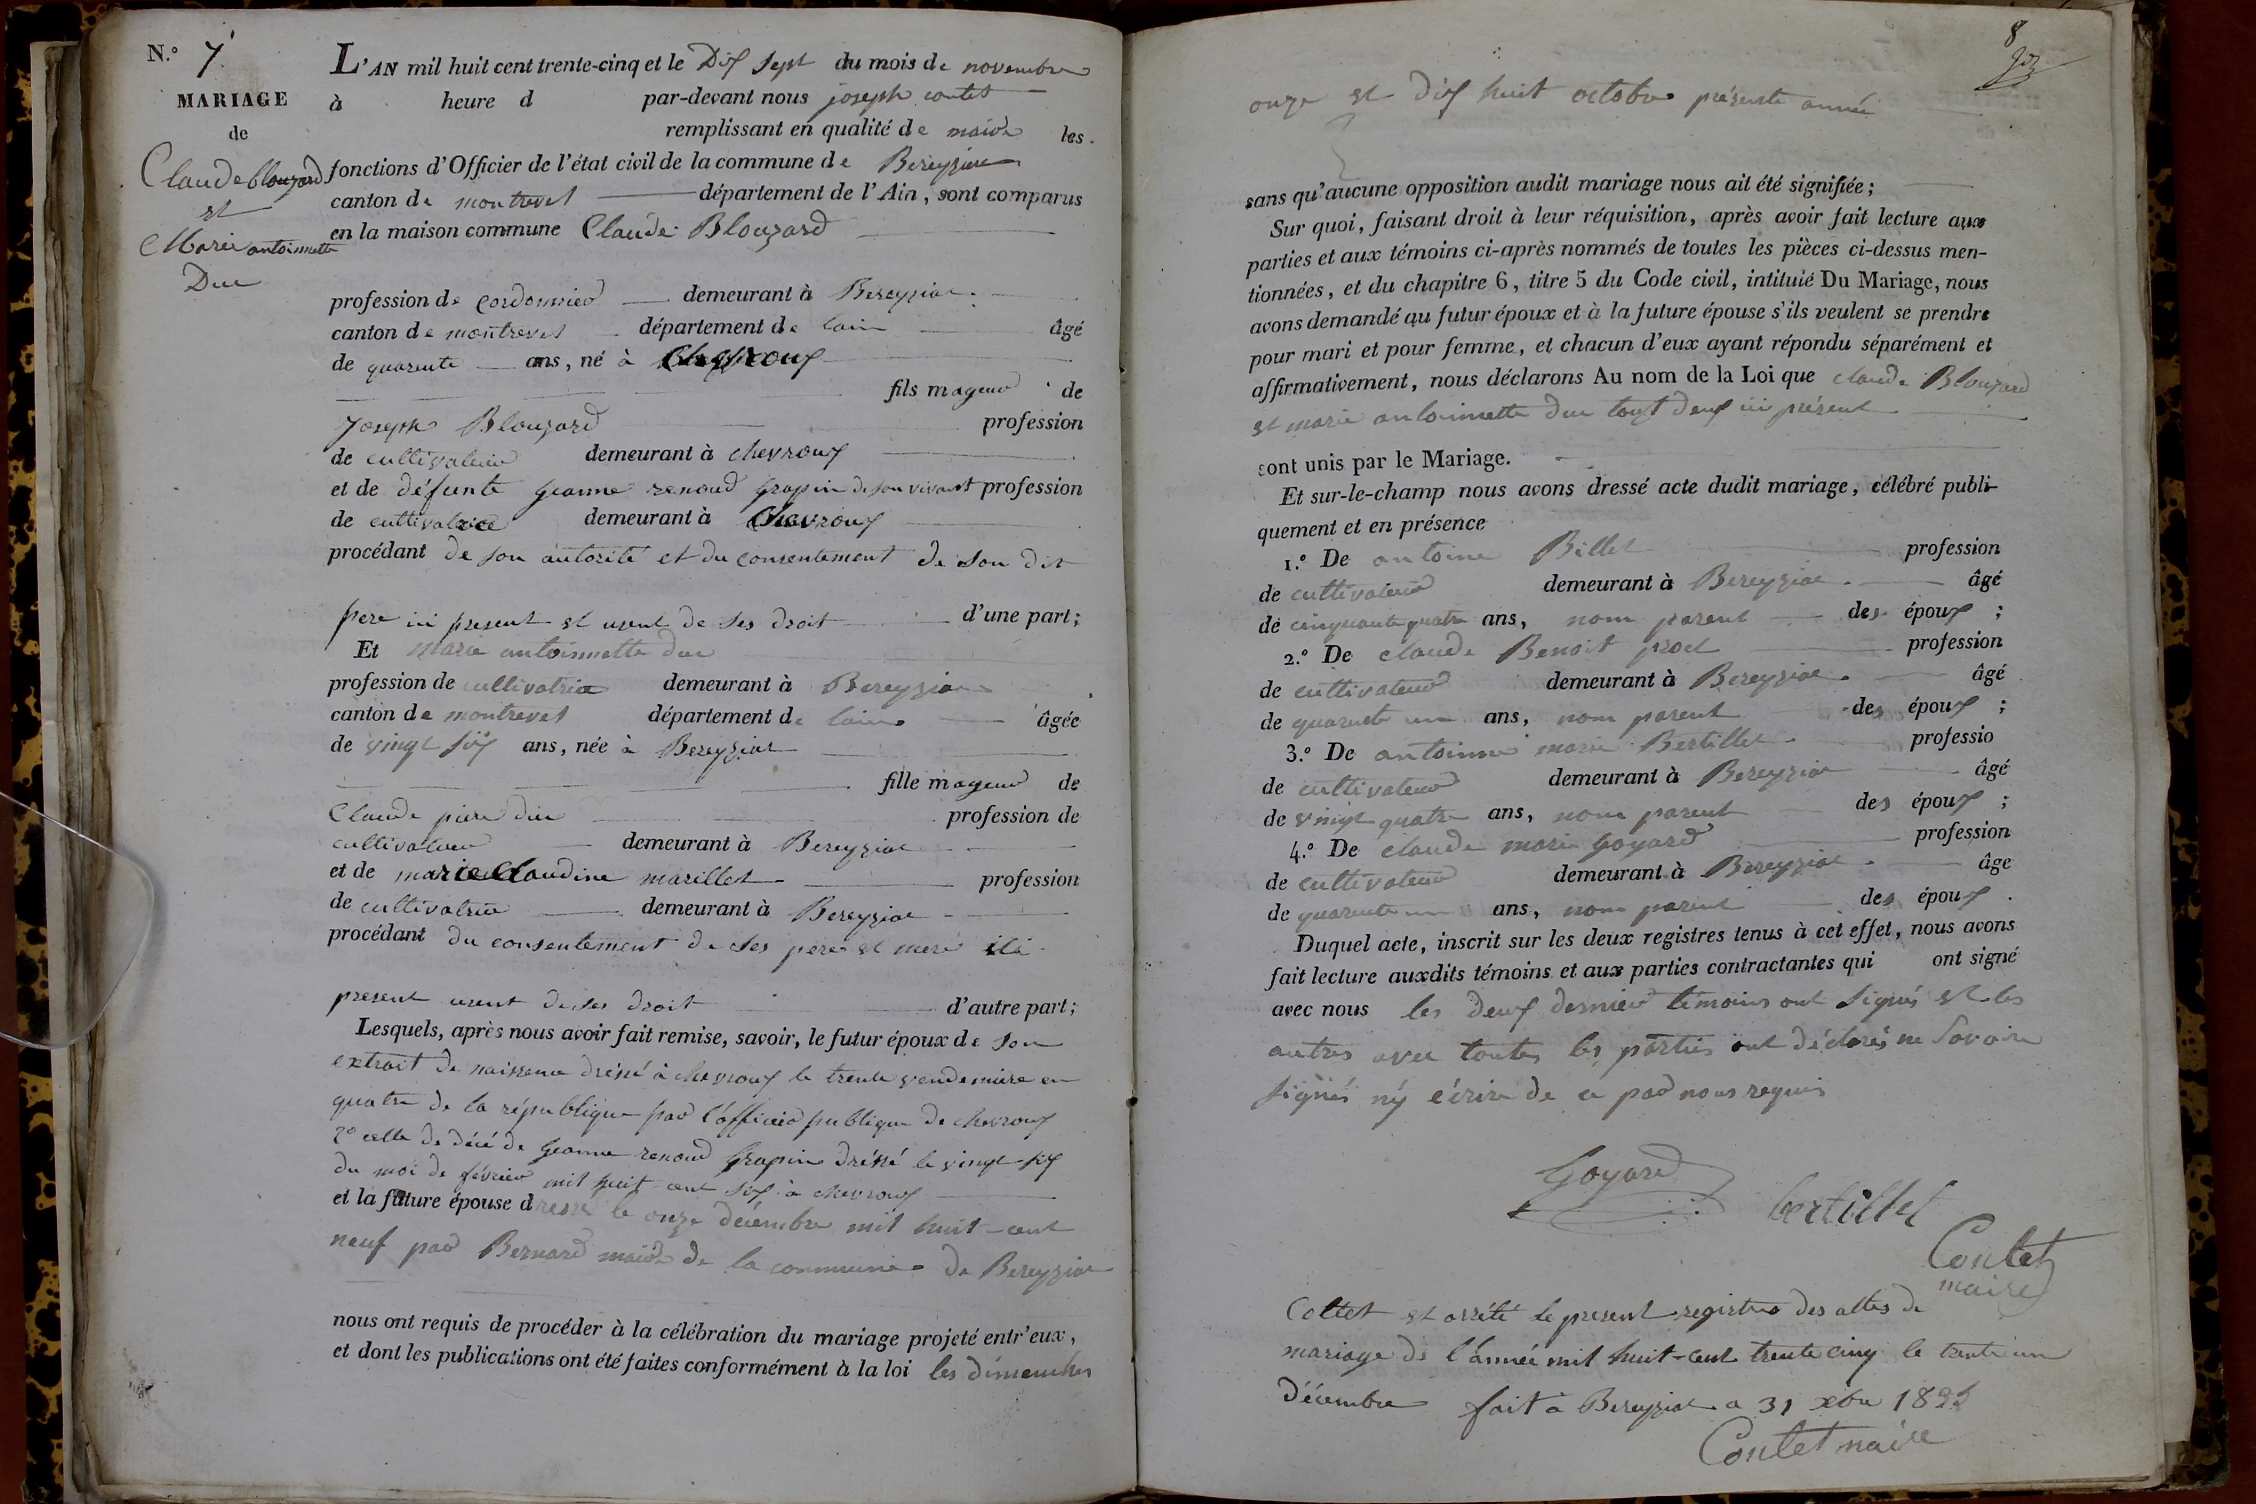 N.° 7
MARIAGE
de
Claude blouzard
et
Marie antoinnette
Duc
L'AN mil huit cent trente-cinq et le Dix sept du mois de novembre
à heure d par-devant nous joseph contet
remplissant en qualité de maire les
fonctions d'Officier de l'état civil de la commune de Bereyziat
canton de montrevel département de l'Ain, sont comparus
en la maison commune Claude Blouzard
profession de cordonnier demeurant à Bereyziat
canton de montrevel département de lain âgé
de quarente ans, né à Chevroux
fils mageur de
Joseph Blouzard profession
de cultivateur demeurant à chevroux
et de défunte Jeanne renoud Grapin de son vivant profession
de cultivatrice demeurant à Chevroux
procédant de son autorité et du consentement de son dit
pere ici present et usent de ses droit d'une part;
Et Marie antoinnette duc
profession de cultivatrice demeurant à Bereyziat
canton de montrevel département de lain âgée
de vingt six ans, née à Bereyziat
fille mageur de
Claude piere duc profession de
cultivateur demeurant à Bereyziat
et de marie Claudine marillet profession
de cultivatrice demeurant à Bereyziat
procédant du consentement de ses pere et mere ici
present usent de ses droit d'autre part;
Lesquels, après nous avoir fait remise, savoir, le futur époux de son
extrait de naissence dréssé à chevroux le trente vendemiere en
quatre de la république par l'officier publique de chevroux
2° celle de décé de Jeanne renoud Grapin dréssé le vingt six
du moi de février mil huit cent six à chevroux
et la future épouse dressé le onze décembre mil huit-cent
neuf par Bernard maire de la commune de Bereyziat
nous ont requis de procéder à la célébration du mariage projeté entr'eux,
et dont les publications ont été faites conformément à la loi les dimenches
8
onze et dix huit octobre présente année
sans qu'aucune opposition audit mariage nous ait été signifiée;
Sur quoi, faisant droit à leur réquisition, après avoir fait lecture aux
parties et aux témoins ci-après nommés de toutes les pièces ci-dessus men-
tionnées, et du chapitre 6, titre 5 du Code civil, intitulé Du Mariage, nous
avons demandé au futur époux et à la future épouse s'ils veulent se prendre
pour mari et pour femme, et chacun d'eux ayant répondu séparément et
affirmativement, nous déclarons Au nom de la Loi que claude Blouzard
et marie antoinnette duc tout deux ici présent
sont unis par le Mariage.
Et sur-le-champ nous avons dressé acte dudit mariage, célébré publi-
quement et en présence
1.° De antoine Billet profession
de cultivateur demeurant à Bereyziat âgé
de cinquante quatre ans, nom parent des époux;
2.° De claude Benoit profession
de cultivateur demeurant à Bereyziat âgé
de quarente un ans, nom parent des époux;
3.° De antoinne marie Bertillet professio
de cultivateur demeurant à Bereyziat âgé
de vingt quatre ans, nom parent des époux;
4.° De claude marie Goyard profession
de cultivateur demeurant à Bereyziat âge
de quarente un ans, nom parent des époux.
Duquel acte, inscrit sur les deux registres tenus à cet effet, nous avons
fait lecture auxdits témoins et aux parties contractantes qui ont signé
avec nous les deux dernier témoins ont signés et les
autres avec toutes les parties ont déclarés ne savoir
signés ny écrire de ce par nous requis
Goyard
bertillet
Contet
maire
Collet et arrété le present registre des actes de
mariage de l'année mil huit-cent trente cinq le trente un
décembre fait à Bereyziat a 31 xbre 1835
Contet maire